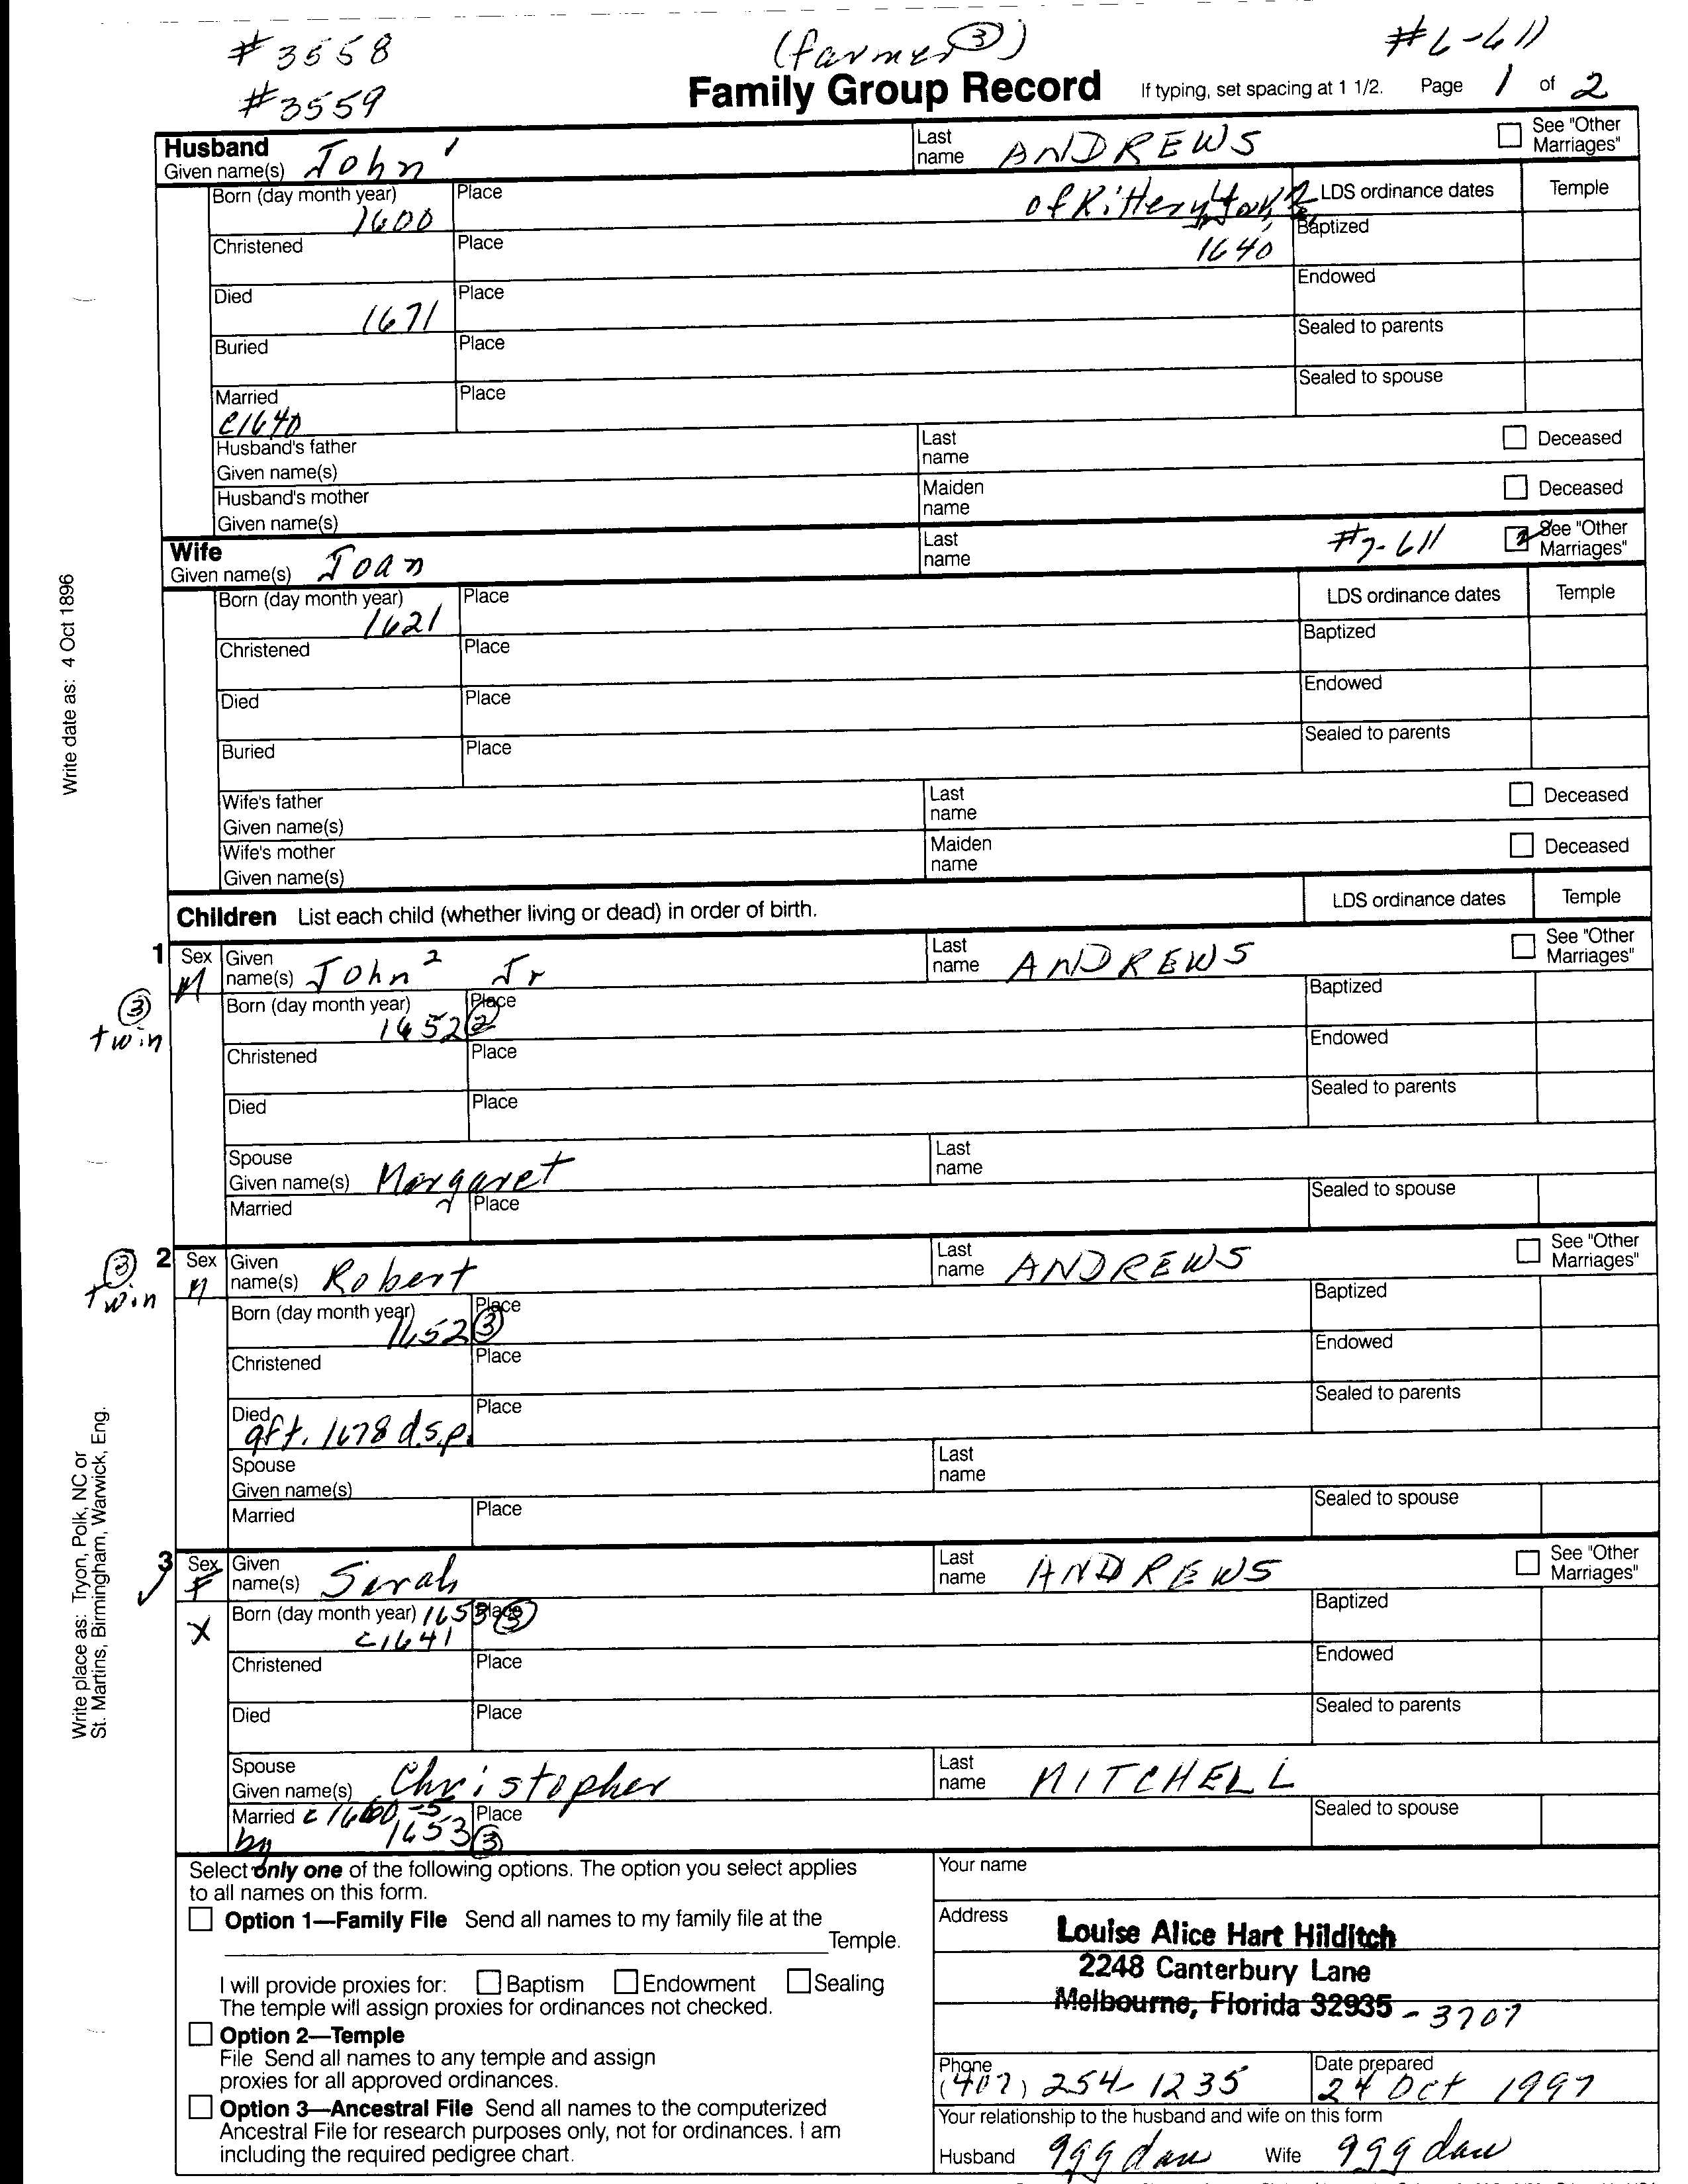 # 3558
(farmer ③)
#6-611
#3559
Family Group Record
If typing, set spacing at 1 1/2. Page 1 of 2
Husband
Given name(s) John 1
Last name ANDREWS
See "Other Marriages"
Born (day month year) 1600
Place of Kittery York
LDS ordinance dates
Temple
1640
Baptized
Christened
Place
Endowed
Died 1671
Place
Sealed to parents
Buried
Place
Sealed to spouse
Married c1640
Place
Husband's father
Given name(s)
Last name
Deceased
Husband's mother
Given name(s)
Maiden name
Deceased
Wife
Given name(s) Joan
Last name
#7-611
2 See "Other Marriages"
Born (day month year) 1621
Place
LDS ordinance dates
Temple
Baptized
Christened
Place
Endowed
Died
Place
Sealed to parents
Buried
Place
Wife's father
Given name(s)
Last name
Deceased
Wife's mother
Given name(s)
Maiden name
Deceased
Children List each child (whether living or dead) in order of birth.
LDS ordinance dates
Temple
1
③ twin
Sex M
Given name(s) John 2 Jr
Last name ANDREWS
See "Other Marriages"
Born (day month year) 1652 ②
Place
Baptized
Christened
Place
Endowed
Died
Place
Sealed to parents
Spouse
Given name(s) Margaret
Last name
Married
Place
Sealed to spouse
2
③ twin
Sex M
Given name(s) Robert
Last name ANDREWS
See "Other Marriages"
Born (day month year) 1652 ③
Place
Baptized
Christened
Place
Endowed
Died aft. 1678 d.s.p.
Place
Sealed to parents
Spouse
Given name(s)
Last name
Married
Place
Sealed to spouse
3
Sex F
X
Given name(s) Sarah
Last name ANDREWS
See "Other Marriages"
Born (day month year) 1653 ③
c1641
Place
Baptized
Christened
Place
Endowed
Died
Place
Sealed to parents
Spouse
Given name(s) Christopher
Last name MITCHELL
Married c 1660-5
by 1653 ③
Place
Sealed to spouse
Select only one of the following options. The option you select applies
to all names on this form.
Option 1—Family File Send all names to my family file at the
Temple.
I will provide proxies for: Baptism Endowment Sealing
The temple will assign proxies for ordinances not checked.
Option 2—Temple
File Send all names to any temple and assign
proxies for all approved ordinances.
Option 3—Ancestral File Send all names to the computerized
Ancestral File for research purposes only, not for ordinances. I am
including the required pedigree chart.
Your name
Address
Louise Alice Hart Hilditch
2248 Canterbury Lane
Melbourne, Florida 32935 - 3707
Phone (407) 254-1235
Date prepared 24 Oct 1997
Your relationship to the husband and wife on this form
Husband ggg dau
Wife ggg dau
Write date as: 4 Oct 1896
Write place as: Tryon, Polk, NC or
St. Martins, Birmingham, Warwick, Eng.